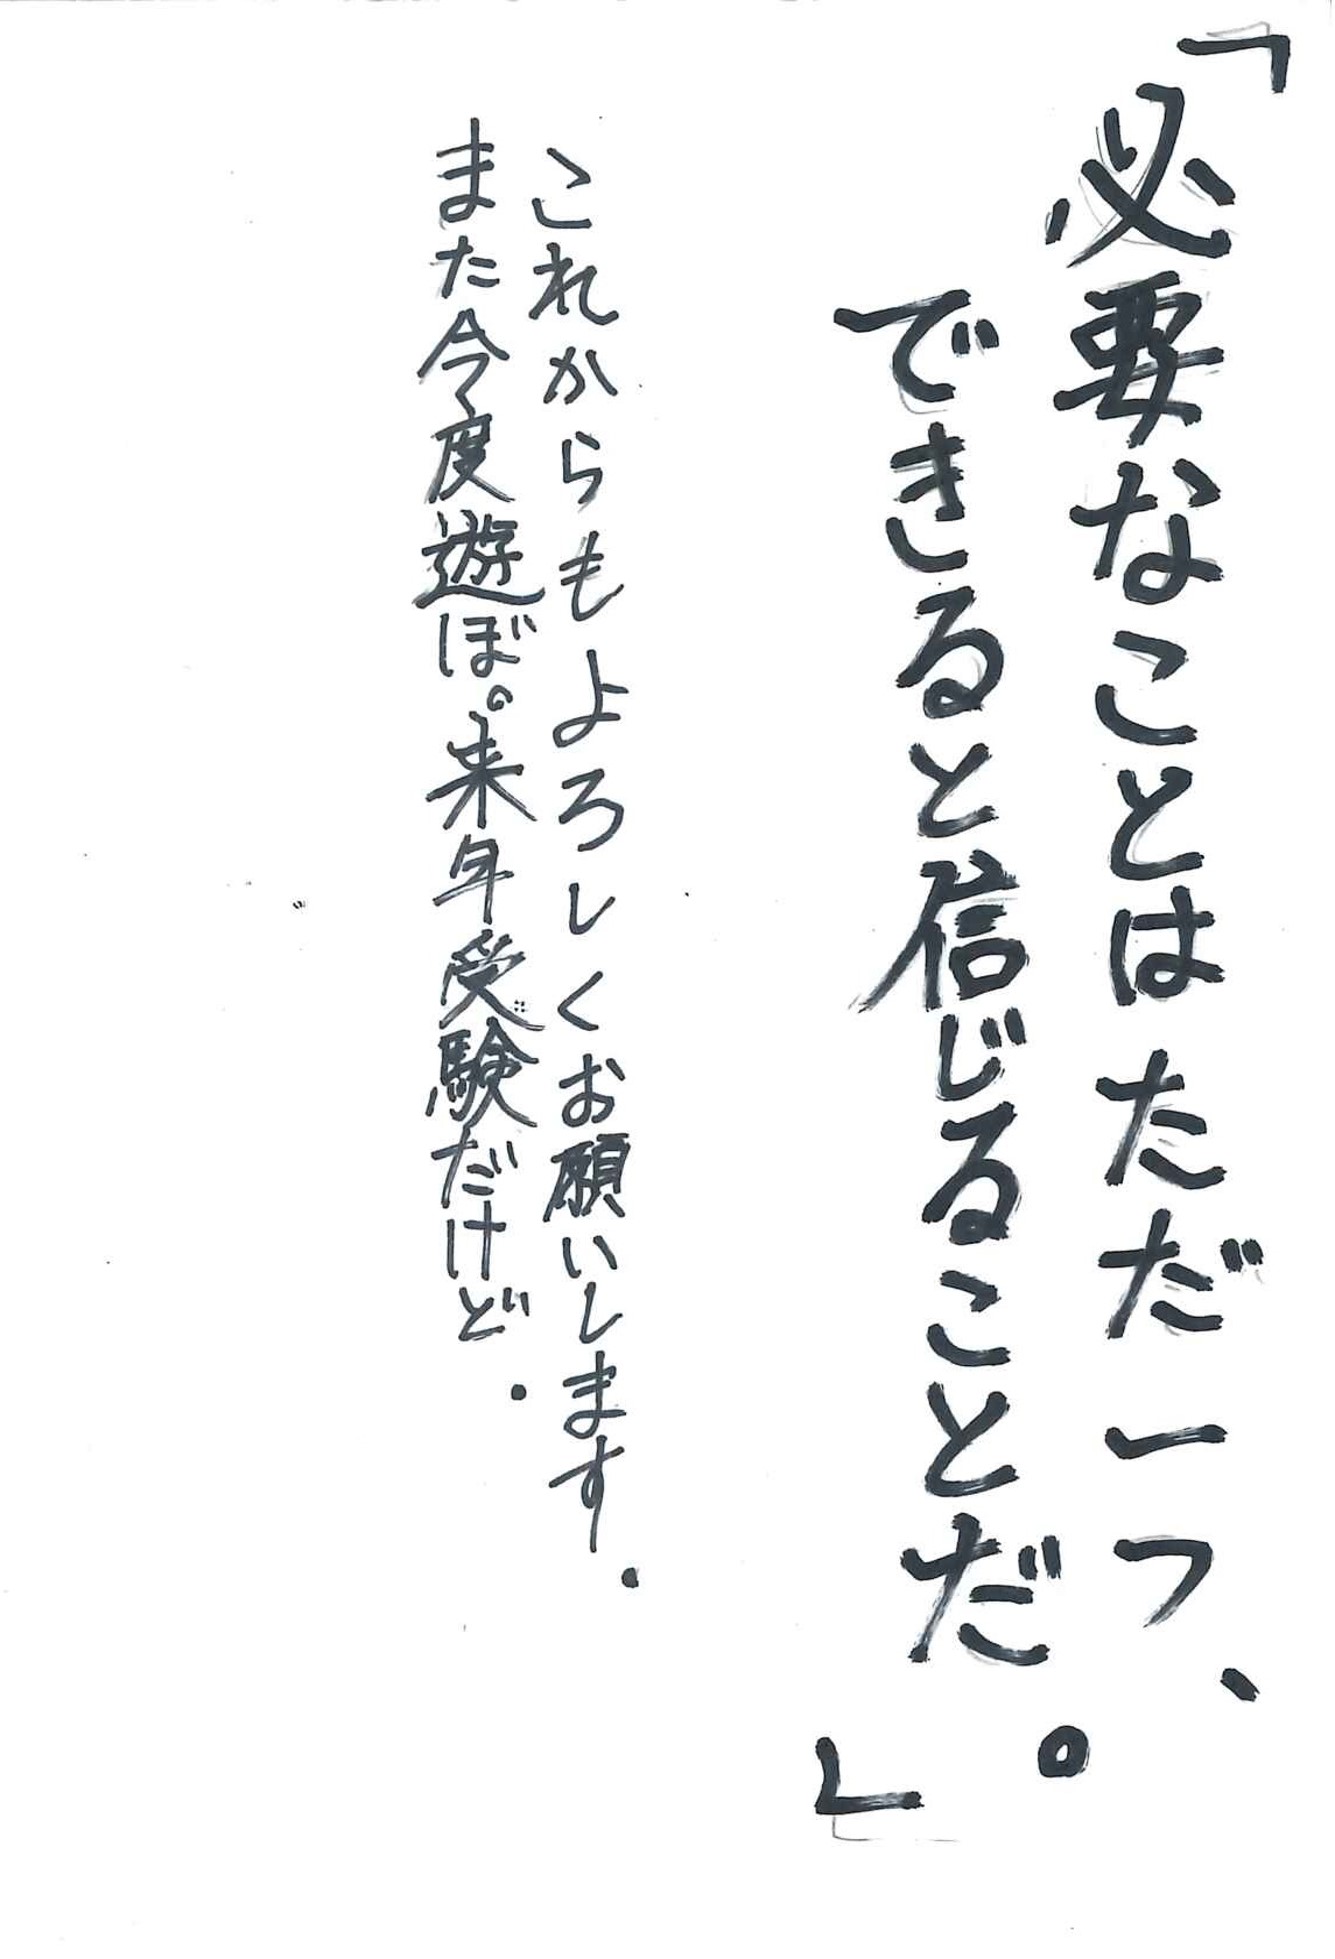 「必要なことはただ一つ、
できると信じることだ。」
これからもよろしくお願いします.
また今度遊ぼ。来年受験だけど.